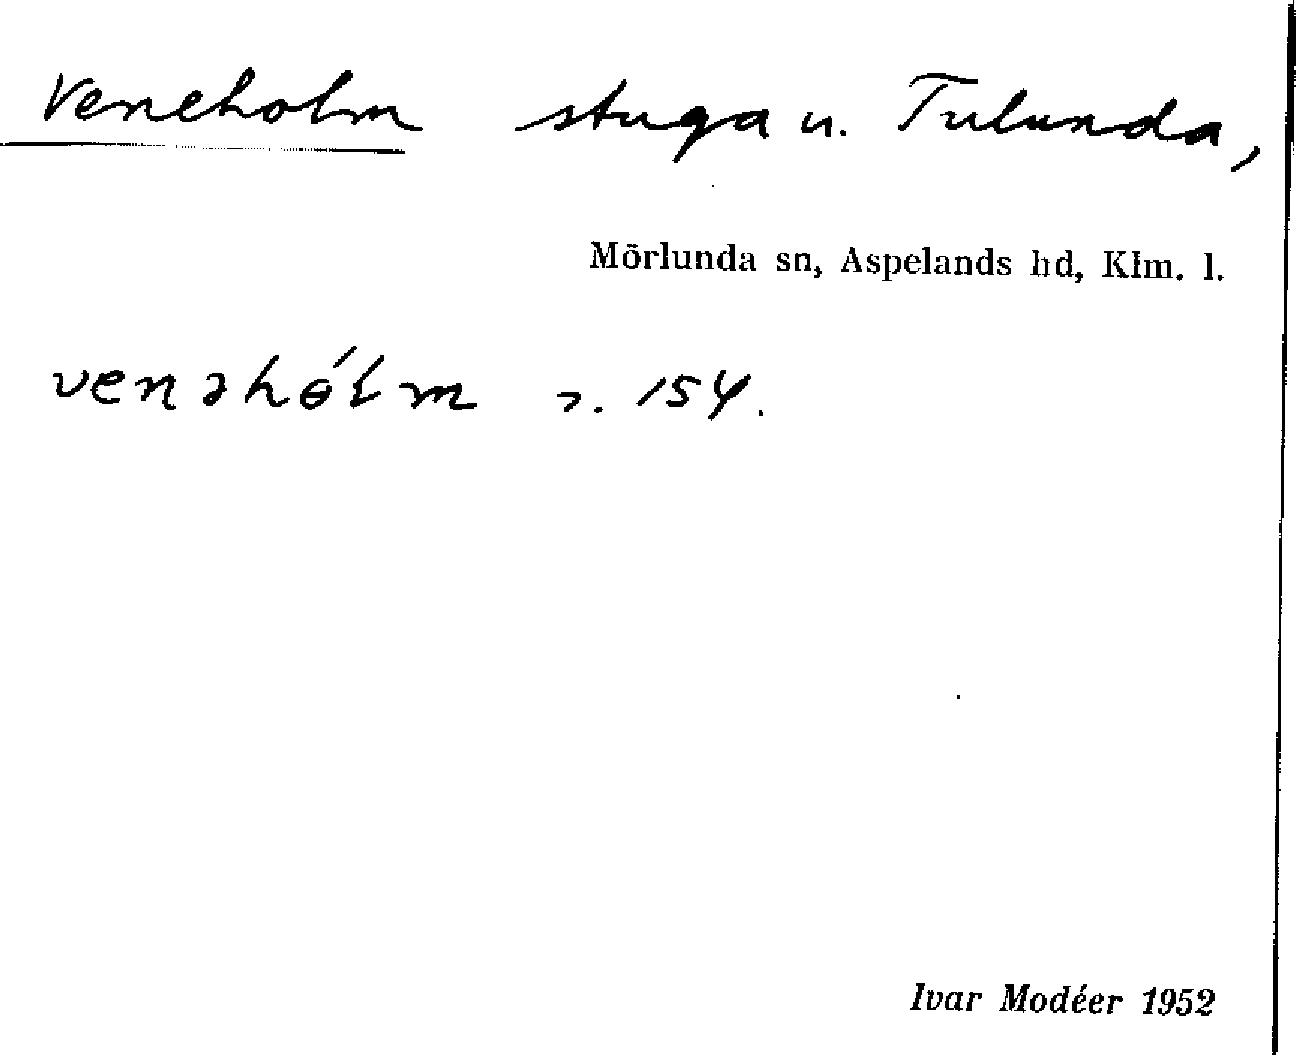 Veneholm stuga u. Tulunda,
Mörlunda sn, Aspelands hd, Klm. l.
venəhɵ́lm 154.
Ivar Modéer 1952